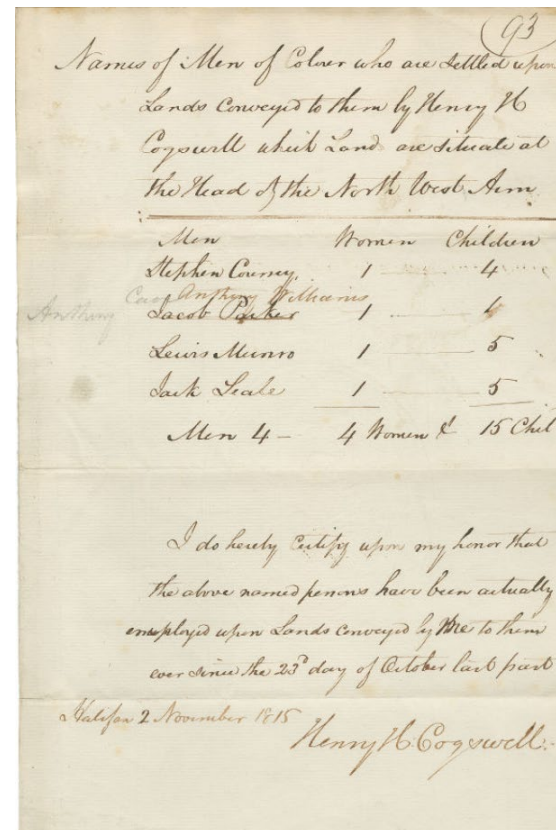 93
Names of Men of Colour who are settled upon
Lands conveyed to them by Henry H
Cogswell which Land are situate at
the Head of the North West Arm
Men Women Children
Stephen 1 4
Anthony Williams
Anthony
Jacob Parker 1
Lewis Munro 1 5
Jack 1 5
Men 4 — 4 Women & 15 Chil
I do hereby certify upon my honor that
the above named persons have been actually
employed upon Lands conveyed by me to them
ever since the 23d day of October last past
Halifax 2 November 1815
Henry H. Cogswell